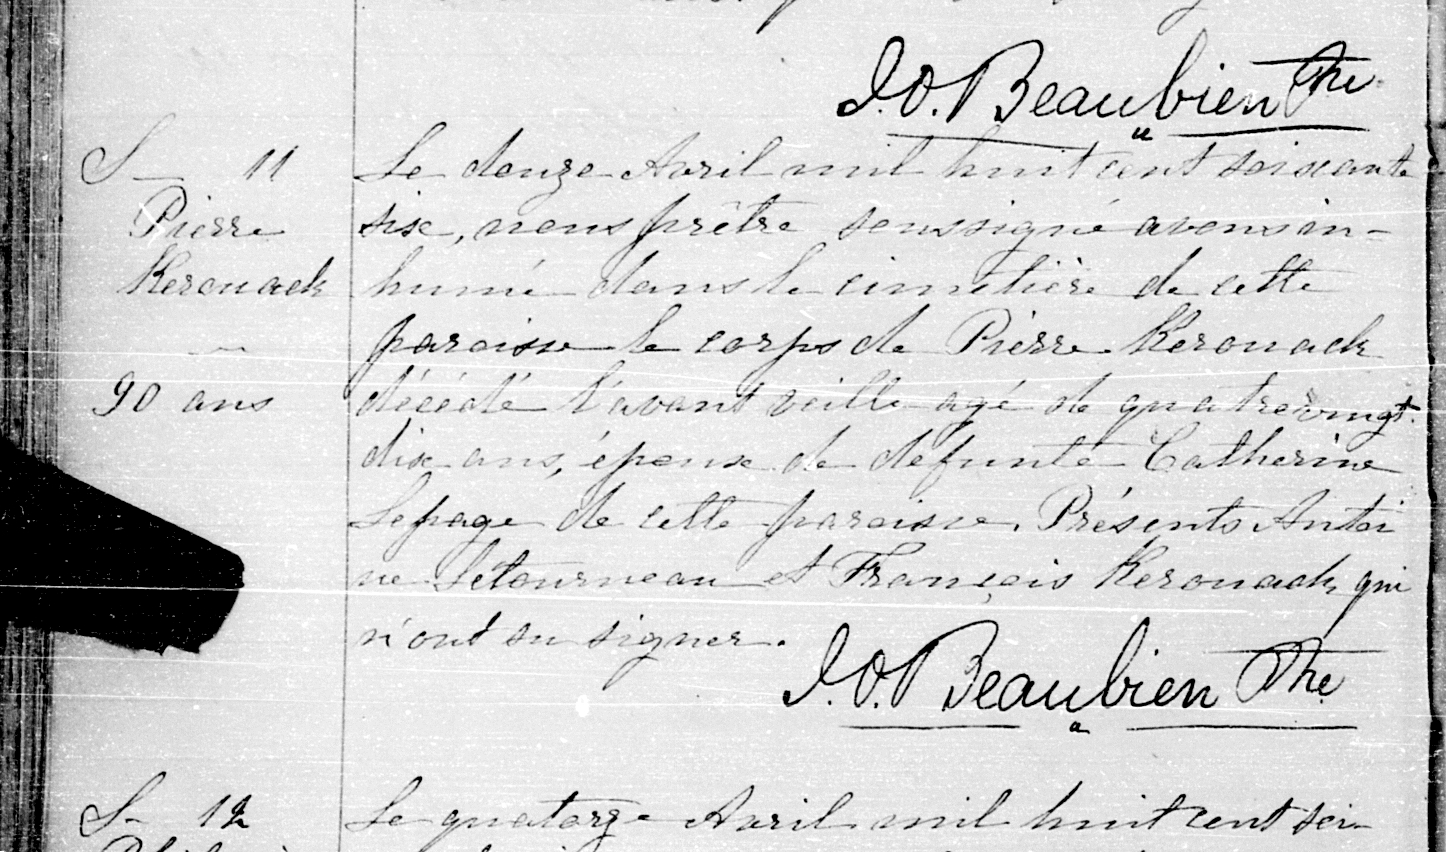 J.O. Beaubien Ptre
S— 11
Le douze Avril mil huit cent soixante
Pierre
six, nous prêtre soussigné avons in-
Kerouack
humé dans le cimetière de cette
paroisse le corps de Pierre Kerouack
90 ans
décédé l'avant veille agé de quatrevingt-
dix ans, époux de defunte Catherine
Lepage de cette paroisse. Présents Antoi
ne Letourneau et François Kerouack qui
n'ont su signer.
J.O. Beaubien Ptre
S— 12
Le quatorze Avril mil huit cent soi-